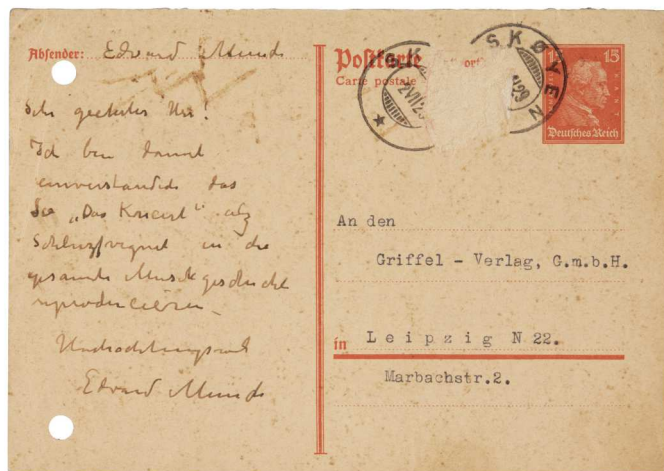 Absender: Edvard Munch
Sehr geehrter Herr!
Ich bin damit
einverstanden das
Sie „Das Koncert“ als
Schlußvignet in die
gesamte Musikgeschicht
reproducieren
Hochachtungsvoll
Edvard Munch
Postkarte
Carte postale
SKØYEN
VII 29
15
KANT
Deutsches Reich
An den
Griffel - Verlag, G.m.b.H.
in Leipzig N 22.
Marbachstr.2.